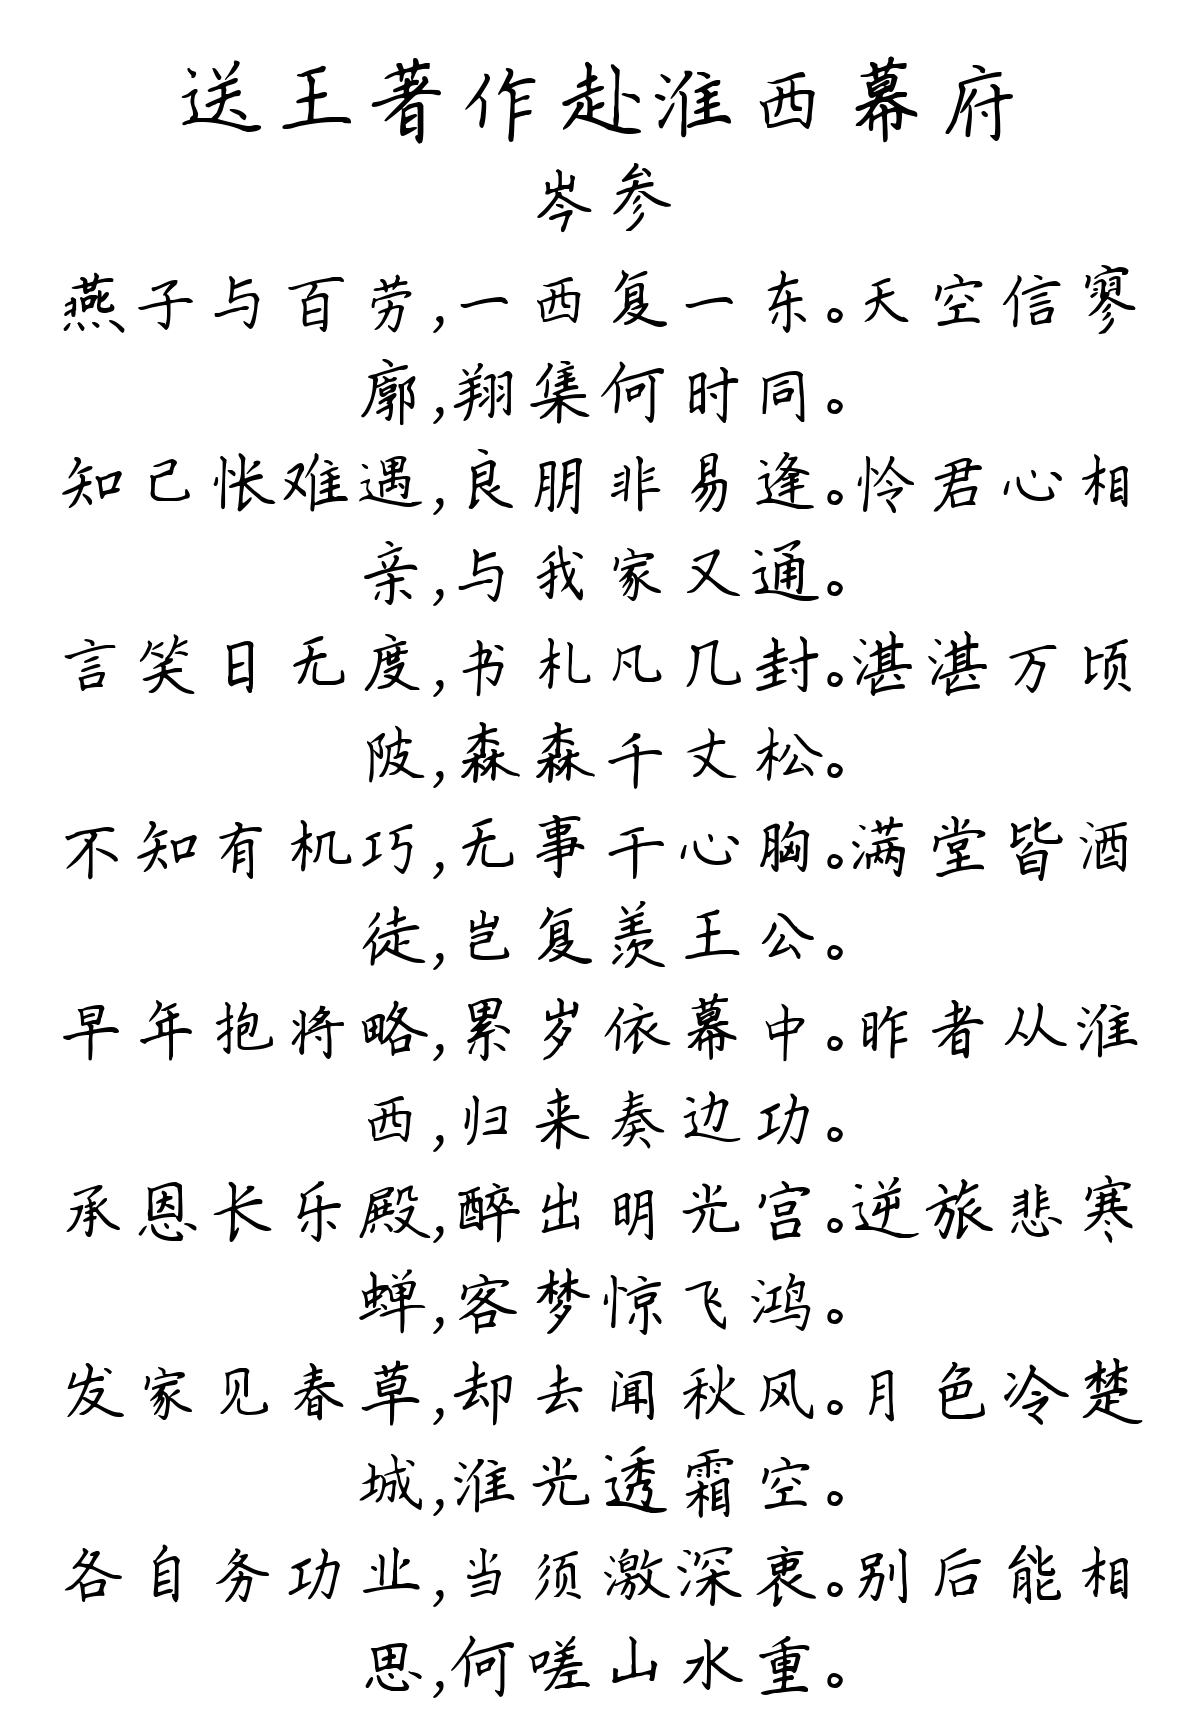 送王著作赴淮西幕府
岑参
燕子与百劳,一西复一东。天空信寥
廓,翔集何时同。
知己怅难遇,良朋非易逢。怜君心相
亲,与我家又通。
言笑日无度,书札凡几封。湛湛万顷
陂,森森千丈松。
不知有机巧,无事干心胸。满堂皆酒
徒,岂复羡王公。
早年抱将略,累岁依幕中。昨者从淮
西,归来奏边功。
承恩长乐殿,醉出明光宫。逆旅悲寒
蝉,客梦惊飞鸿。
发家见春草,却去闻秋风。月色冷楚
城,淮光透霜空。
各自务功业,当须激深衷。别后能相
思,何嗟山水重。